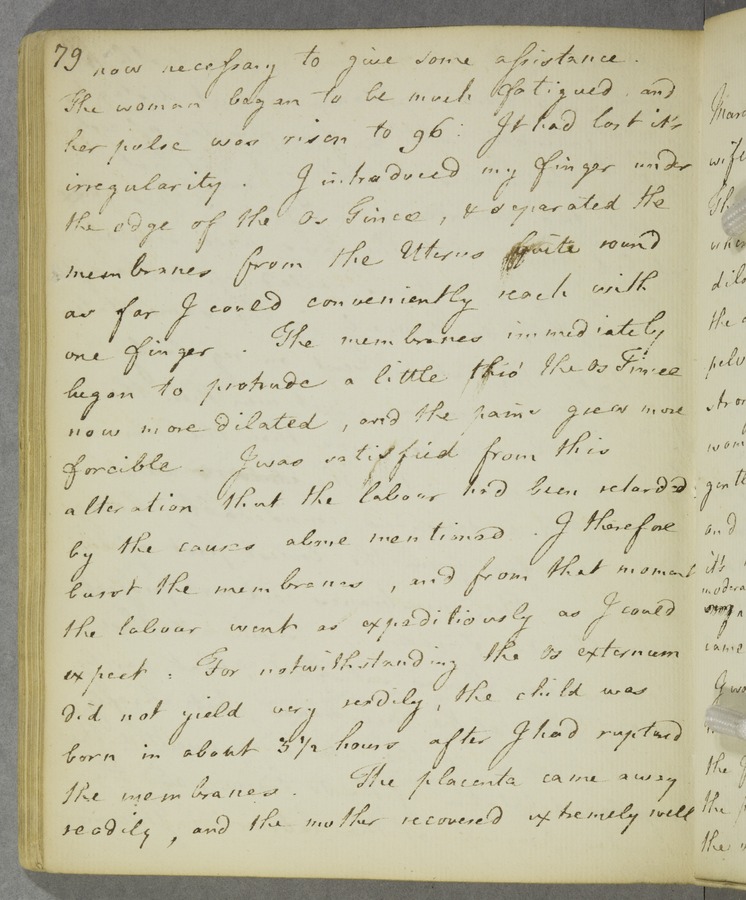 79
now necessary to give some assistance.
The woman began to be much fatigued, and
her pulse was risen to 96: It had lost it's
irregularity. I introduced my finger under
the edge of the Os Tincæ, & separated the
membranes from the Uterus quite round
as far I could conveniently reach with
one finger. The membranes immediately
began to protrude a little thro' the Os Tincæ
now more dilated, and the pains grew more
forcible. I was satisfied from this
alteration that the labour had been retarded
by the causes above mentioned. I therefore
burst the membranes, and from that moment
the labour went as expeditiously as I could
expect: For notwithstanding the Os externum
did not yield very readily, the child was
born in about 3½ hours after I had ruptured
the membranes. The placenta came away
readily, and the mother recovered extremely well